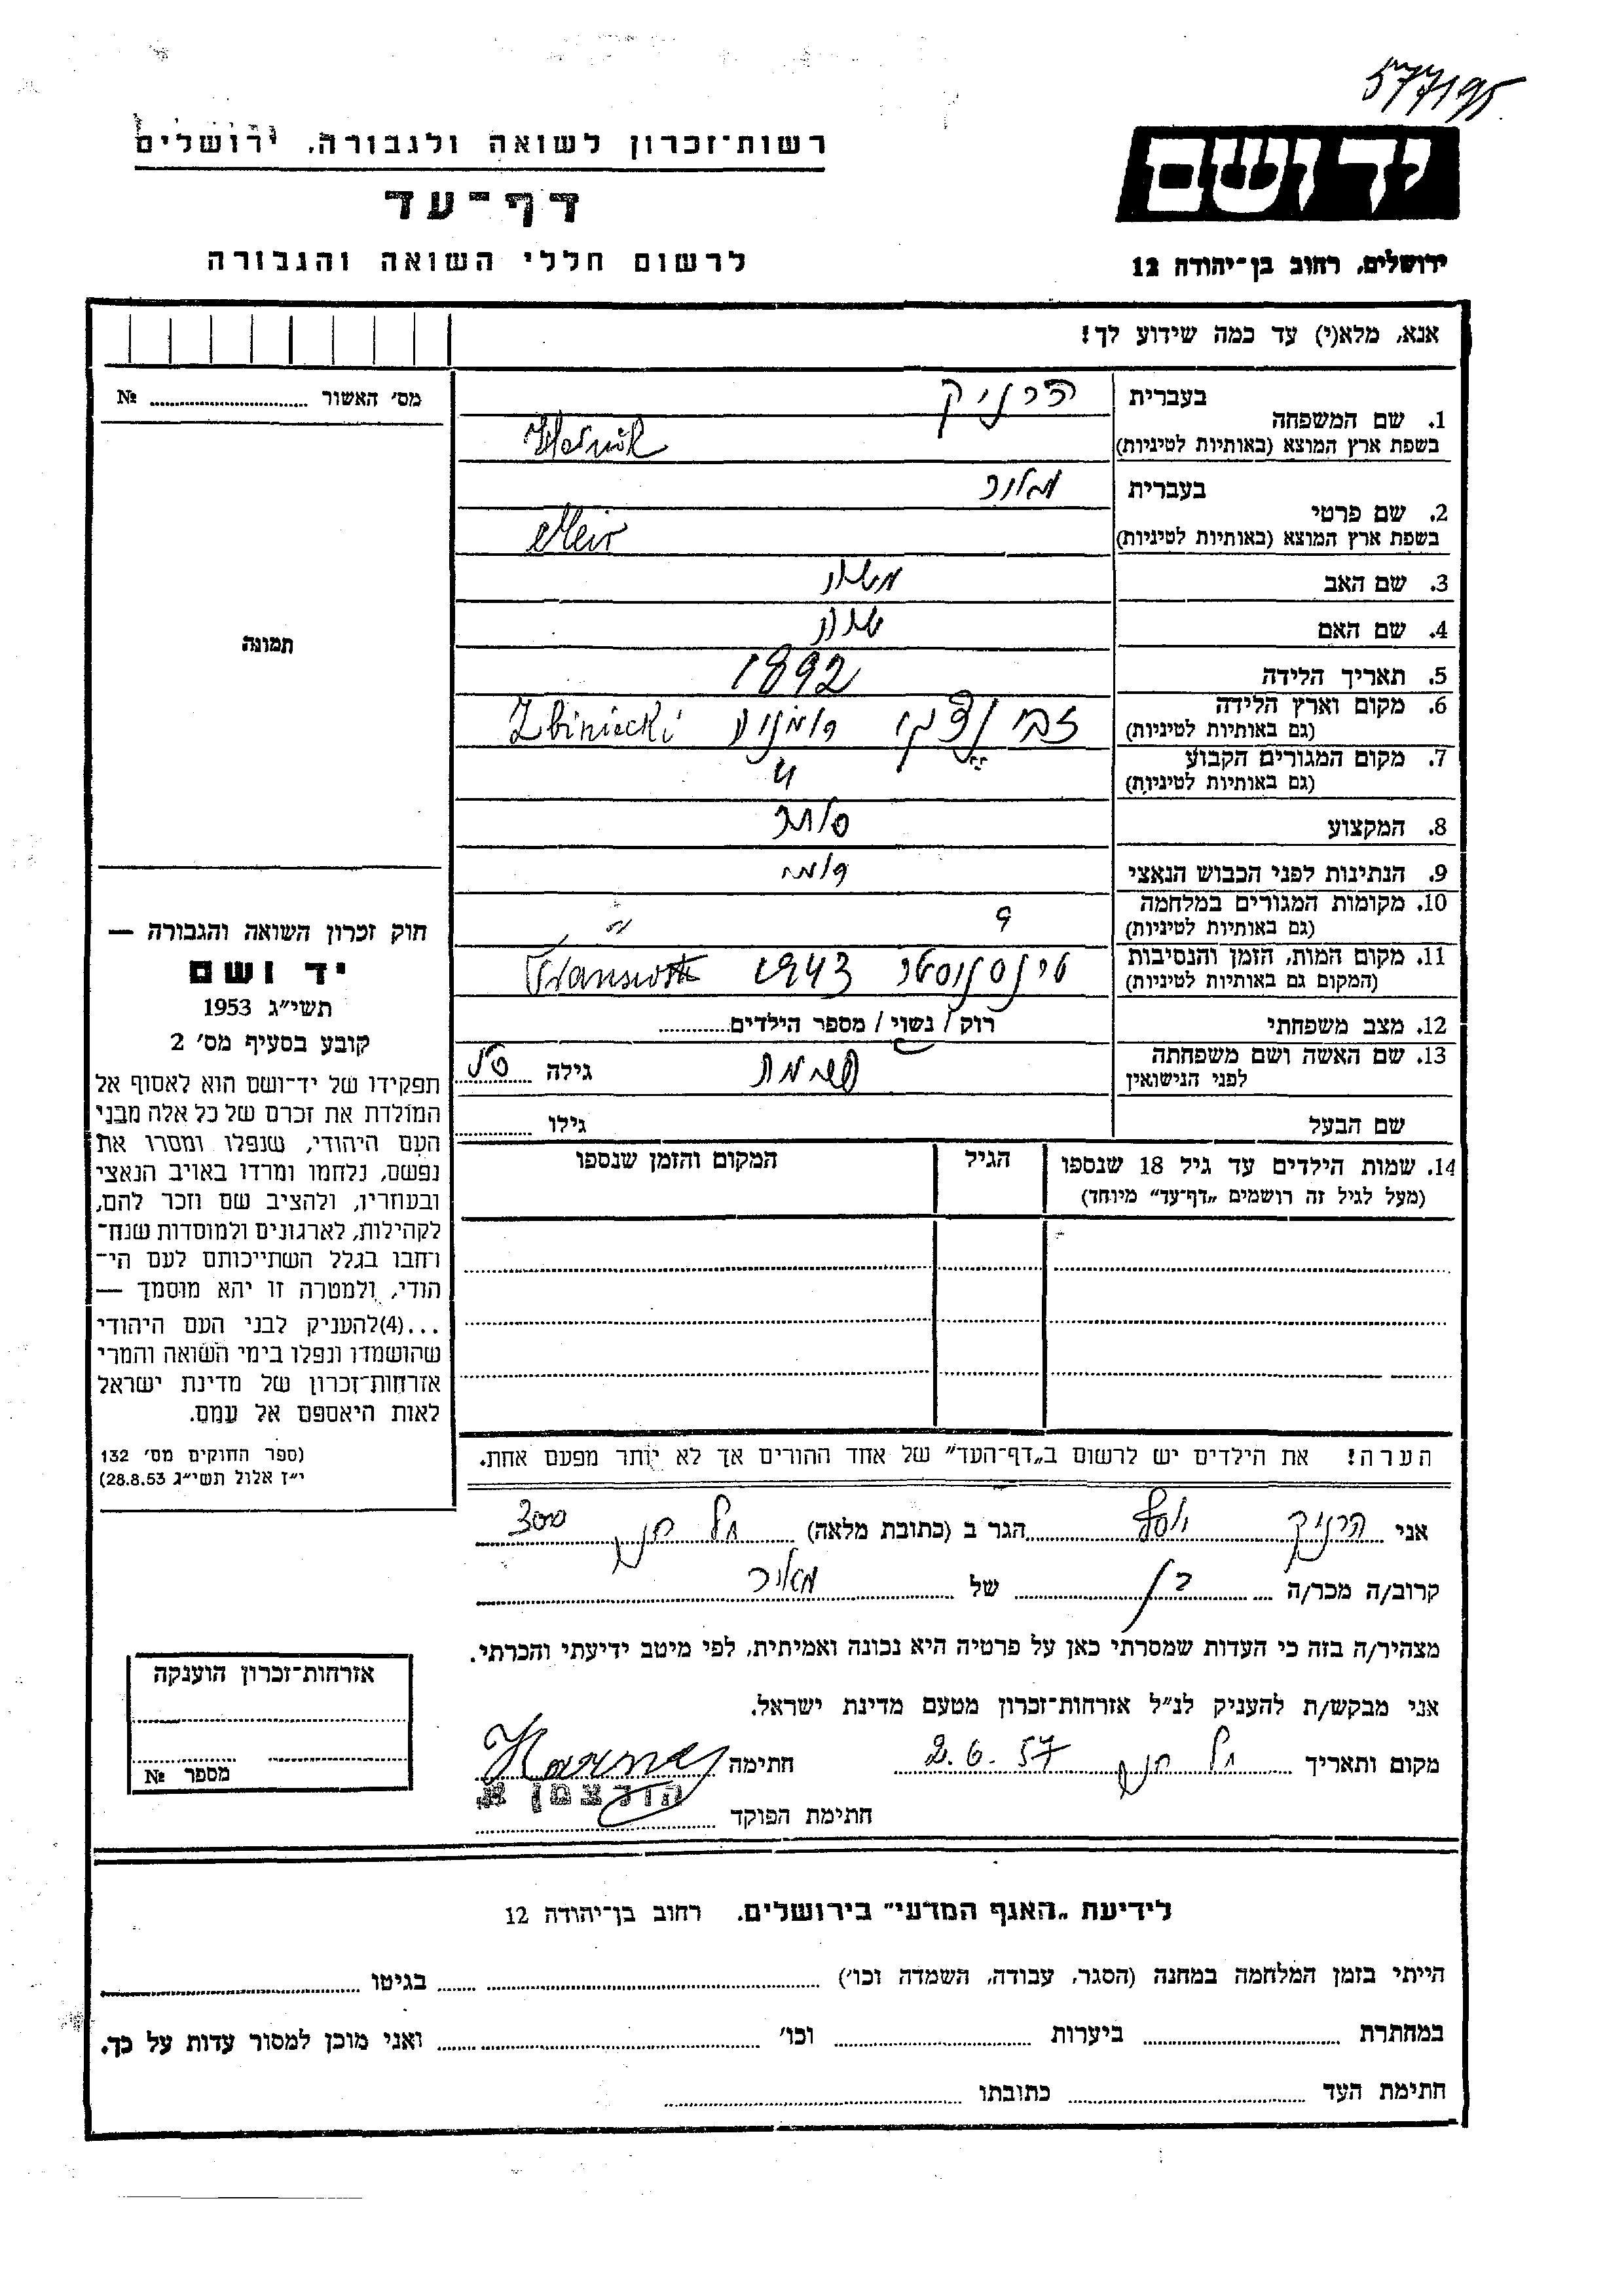 577195
רשות־זכרון לשואה ולגבורה, ירושלים
יד ושם
דף־עד
לרשום חללי השואה והגבורה
ירושלים, רחוב בן־יהודה 12
אנא, מלא(י) עד כמה שידוע לך!
מס' האשור № 
1. שם המשפחה בעברית הרניק
בשפת ארץ המוצא (באותיות לטיניות)
2. שם פרטי בעברית מאיר
בשפת ארץ המוצא (באותיות לטיניות) Meir
3. שם האב משה
4. שם האם שרה
5. תאריך הלידה 1892
6. מקום וארץ הלידה (גם באותיות לטיניות) רומניה Zbiniecki
7. מקום המגורים הקבוע (גם באותיות לטיניות) "
8. המקצוע סוחר
9. הנתינות לפני הכבוש הנאצי רומ'
10. מקומות המגורים במלחמה (גם באותיות לטיניות)
11. מקום המות, הזמן והנסיבות (המקום גם באותיות לטיניות) 1943
12. מצב משפחתי רוק / נשוי / מספר הילדים
13. שם האשה ושם משפחתה לפני הנישואין גילה
שם הבעל גילו
14. שמות הילדים עד גיל 18 שנספו הגיל המקום והזמן שנספו
(מעל לגיל זה רושמים „דף־עד” מיוחד)
הערה! את הילדים יש לרשום ב„דף־העד” של אחד ההורים אך לא יותר מפעם אחת.
תמונה
חוק זכרון השואה והגבורה —
יד ושם
תשי"ג 1953
קובע בסעיף מס' 2
תפקידו של יד־ושם הוא לאסוף אל
המולדת את זכרם של כל אלה מבני
העם היהודי, שנפלו ומסרו את
נפשם, נלחמו ומרדו באויב הנאצי
ובעוזריו, ולהציב שם וזכר להם,
לקהילות, לארגונים ולמוסדות שנח־
רחבו בגלל השתייכותם לעם הי־
הודי, ולמטרה זו יהא מוסמך —
...(4)להעניק לבני העם היהודי
שהושמדו ונפלו בימי השואה והמרי
אזרחות־זכרון של מדינת ישראל
לאות היאספם אל עמם.
(ספר החוקים מס' 132
י"ז אלול תשי"ג 28.8.53)
אני הרניק יוסף הגר ב (כתובת מלאה) תל חנן 300
קרוב/ה מכר/ה בן של מאיר
מצהיר/ה בזה כי העדות שמסרתי כאן על פרטיה היא נכונה ואמיתית, לפי מיטב ידיעתי והכרתי.
אני מבקש/ת להעניק לנ"ל אזרחות־זכרון מטעם מדינת ישראל.
מקום ותאריך תל חנן 2.6.57 חתימה
חתימת הפוקד
אזרחות־זכרון הוענקה
מספר №
לידיעת „האגף המדעי” בירושלים, רחוב בן־יהודה 12
הייתי בזמן המלחמה במחנה (הסגר, עבודה, השמדה וכו') בגיטו
במחתרת ביערות וכו' ואני מוכן למסור עדות על כך.
חתימת העד כתובתו